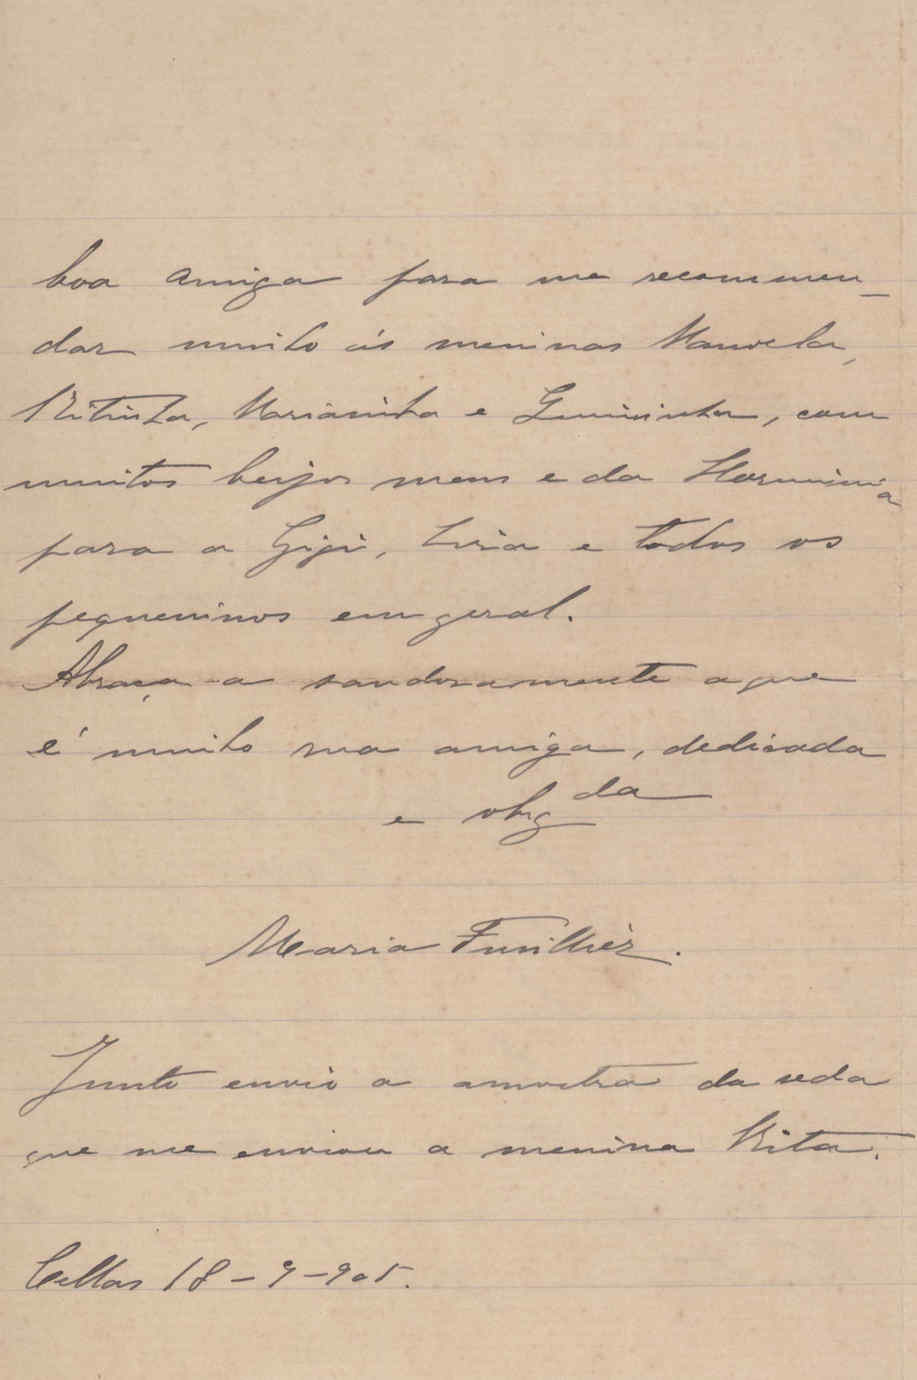 boa amiga para me recommen-
dar muito ás meninas Manuela,
Ritinha, Marianinha e Gemininha, com
muitos beijos meus e da Herminia
para a Gigi, Livia e todos os
pequeninos em geral.
Abraça-a saudosamente a que
é muito sua amiga, dedicada
e obg da
Maria Fusillièr.
Junto envio a amostra da seda
que me enviou a menina Rita.
Cellas 18-9-905.